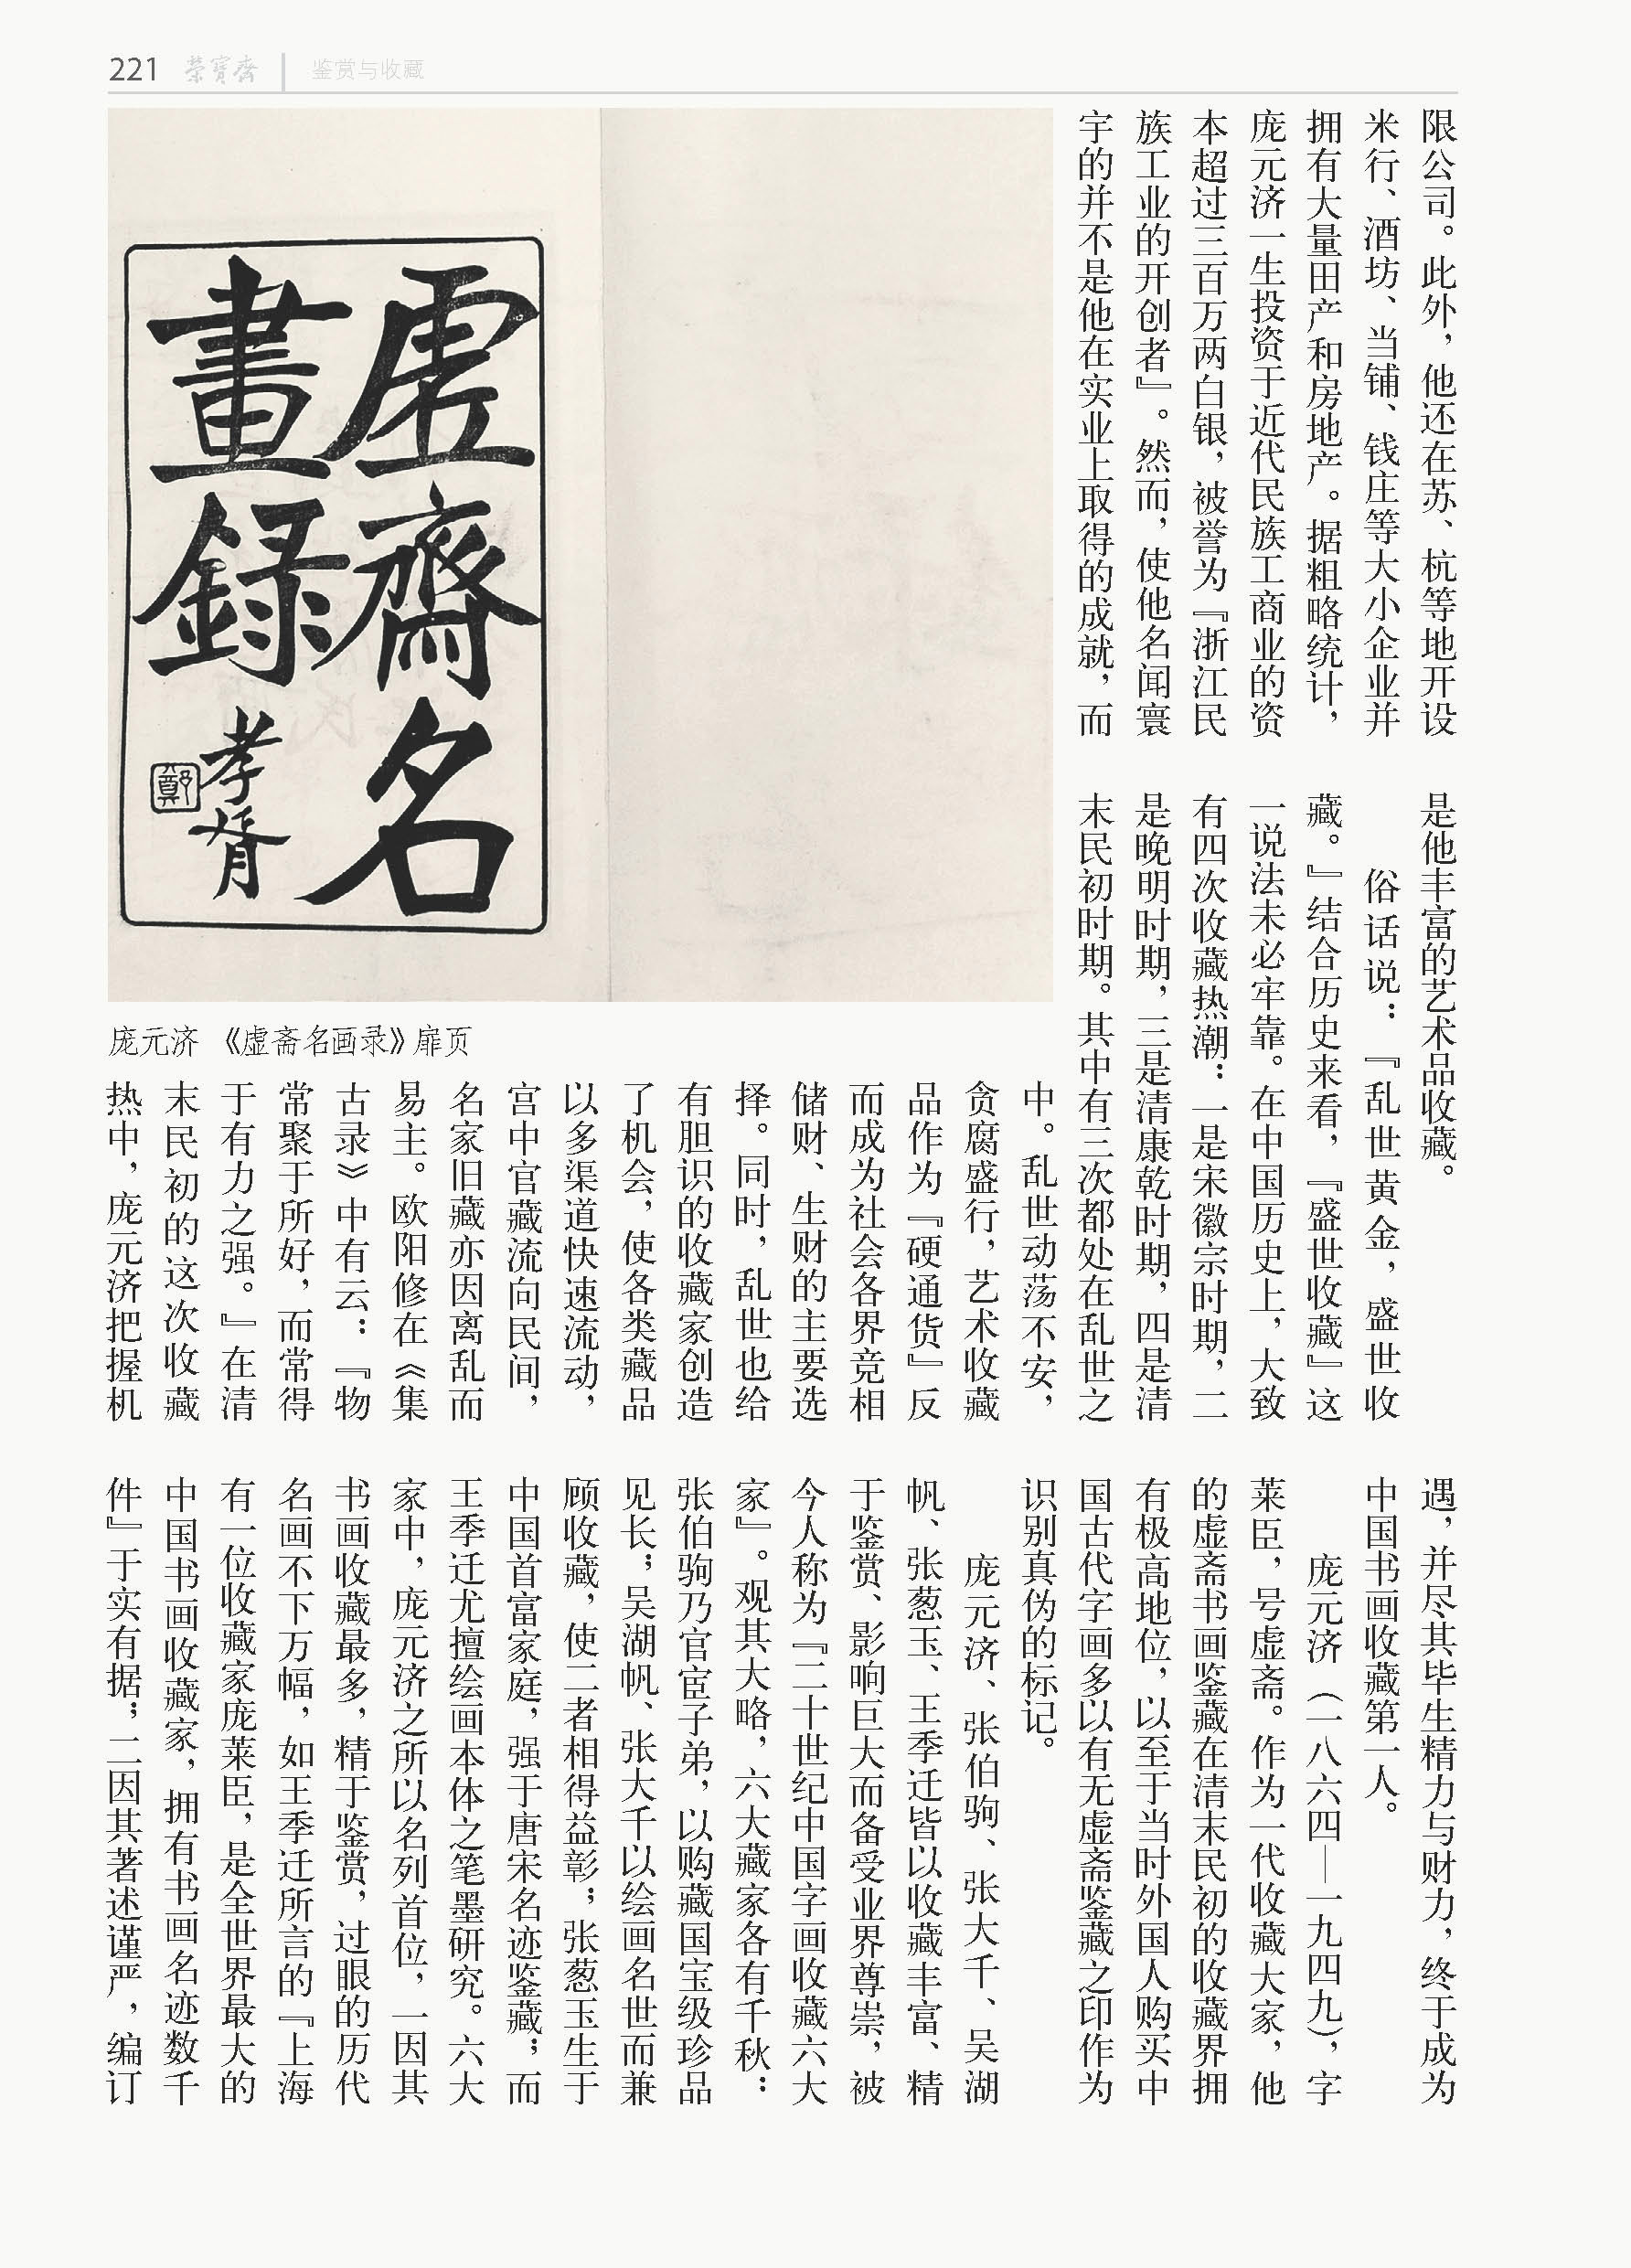 221 荣宝斋 鉴赏与收藏
限公司。此外，他还在苏、杭等地开设
米行、酒坊、当铺、钱庄等大小企业并
拥有大量田产和房地产。据粗略统计，
庞元济一生投资于近代民族工商业的资
本超过三百万两白银，被誉为『浙江民
族工业的开创者』。然而，使他名闻寰
宇的并不是他在实业上取得的成就，而
虚齋名
畫録
孝胥
鄭
庞元济 《虚斋名画录》扉页
是他丰富的艺术品收藏。
俗话说：『乱世黄金，盛世收
藏。』结合历史来看，『盛世收藏』这
一说法未必牢靠。在中国历史上，大致
有四次收藏热潮：一是宋徽宗时期，二
是晚明时期，三是清康乾时期，四是清
末民初时期。其中有三次都处在乱世之
中。乱世动荡不安，
贪腐盛行，艺术收藏
品作为『硬通货』反
而成为社会各界竞相
储财、生财的主要选
择。同时，乱世也给
有胆识的收藏家创造
了机会，使各类藏品
以多渠道快速流动，
宫中官藏流向民间，
名家旧藏亦因离乱而
易主。欧阳修在《集
古录》中有云：『物
常聚于所好，而常得
于有力之强。』在清
末民初的这次收藏
热中，庞元济把握机
遇，并尽其毕生精力与财力，终于成为
中国书画收藏第一人。
庞元济（一八六四—一九四九），字
莱臣，号虚斋。作为一代收藏大家，他
的虚斋书画鉴藏在清末民初的收藏界拥
有极高地位，以至于当时外国人购买中
国古代字画多以有无虚斋鉴藏之印作为
识别真伪的标记。
庞元济、张伯驹、张大千、吴湖
帆、张葱玉、王季迁皆以收藏丰富、精
于鉴赏、影响巨大而备受业界尊崇，被
今人称为『二十世纪中国字画收藏六大
家』。观其大略，六大藏家各有千秋：
张伯驹乃官宦子弟，以购藏国宝级珍品
见长；吴湖帆、张大千以绘画名世而兼
顾收藏，使二者相得益彰；张葱玉生于
中国首富家庭，强于唐宋名迹鉴藏；而
王季迁尤擅绘画本体之笔墨研究。六大
家中，庞元济之所以名列首位，一因其
书画收藏最多，精于鉴赏，过眼的历代
名画不下万幅，如王季迁所言的『上海
有一位收藏家庞莱臣，是全世界最大的
中国书画收藏家，拥有书画名迹数千
件』于实有据；二因其著述谨严，编订